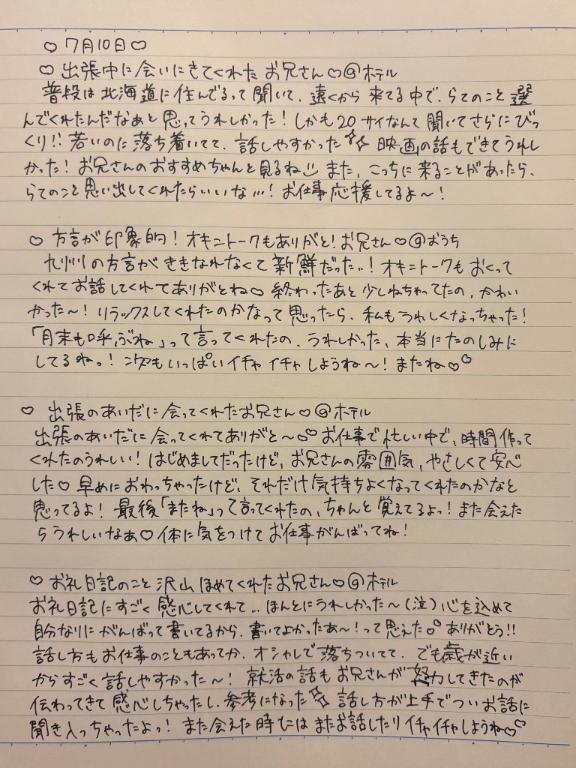 ♡ 7月10日♡
♡ 出張中に会いにきてくれた お兄さん♡@ホテル
普段は北海道に住んでるって聞いて、遠くから 来てる中で、らてのこと 選
んでくれたんだなぁと 思ってうれしかった！しかも20サイなんて 聞いてさらにびっ
くり!! 若いのに落ち着いてて、話しやすかった☆ 映画の話もできてうれし
かった！お兄さんのおすすめちゃんと見るね また、こっちに来ることがあったら、
らてのこと思い出してくれたらいいな…！お仕事応援してるよ〜！
♡ 方言が印象的！オキニトークもありがと！お兄さん♡@おうち
九州の方言が ききなれなくて新鮮だった..！オキニトークも おくって
くれてお話してくれてありがとね♡ 終わったあと少しねちゃってたの、かわい
かった〜！リラックスしてくれたのかなって思ったら、私もうれしくなっちゃった！
「月末も呼ぶね」って言ってくれたの、うれしかった、本当にたのしみに
してるね。！次もいっぱいイチャイチャしようね〜！またね♡
♡ 出張のあいだに会ってくれたお兄さん♡@ホテル
出張のあいだに会ってくれてありがと〜 お仕事で忙しい中で、時間作って
くれたのうれしい！はじめましてだったけど、お兄さんの雰囲気、やさしくて安心
した♡ 早めにおわっちゃったけど、それだけ気持ちよくなってくれたのかなと
思ってるよ！ 最後「またね」って言ってくれたの、ちゃんと覚えてるよっ！また会えた
らうれしいなあ♡ 体に気をつけてお仕事がんばってね！
♡ お礼日記のこと 沢山 ほめてくれたお兄さん♡@ホテル
お礼日記にすごく感心してくれて.. ほんとにうれしかった〜(泣)心を込めて
自分なりにがんばって書いてるから、書いてよかったあ〜！って思えた ありがとう!!
話し方もお仕事のこともあってか、オシャレで落ちついてて、でも歳が近い
からすごく話しやすかった〜！ 就活の話もお兄さんが努力してきたのが
伝わってきて感心しちゃったし、参考になった☆ 話し方が上手でついお話に
聞き入っちゃったよっ！また会えた時にはまたお話したりイチャイチャしようね♡